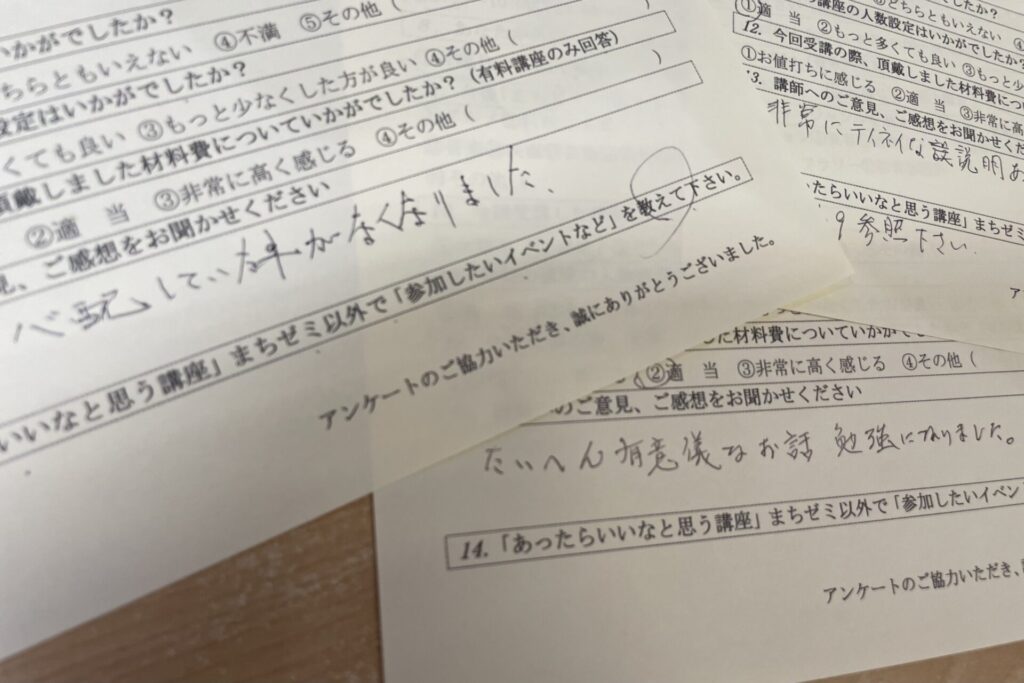 いかがでしたか？
ちらともいえない ④不満 ⑤その他（
設定はいかがでしたか？
くても良い ③もっと少なくした方が良い ④その他（ ）
頂戴しました材料費についていかがでしたか？（有料講座のみ回答）
②適 当 ③非常に高く感じる ④その他（ ）
見、ご感想をお聞かせください
心配していた件がなくなりました、
いいなと思う講座」まちゼミ以外で「参加したいイベントなど」を教えて下さい。
アンケートのご協力いただき、誠にありがとうございました。
③どちらともいえない
講座の人数設定はいかがでしたか？
①適 当 ②もっと多くても良い ③もっと少
12. 今回受講の際、頂戴しました材料費につ
①お値打ちに感じる ②適 当 ③非常に高
3. 講師へのご意見、ご感想をお聞かせくだ
非常にテイネイな 説明あ
ったらいいなと思う講座」まちゼミ以
9参照下さい
した材料費についていかがで
②適 当 ③非常に高く感じる ④その他（
のご意見、ご感想をお聞かせください
たいへん有意義なお話 勉強になりました。
14.「あったらいいなと思う講座」まちゼミ以外で「参加したいイベン
アンケートのご協力いただき、